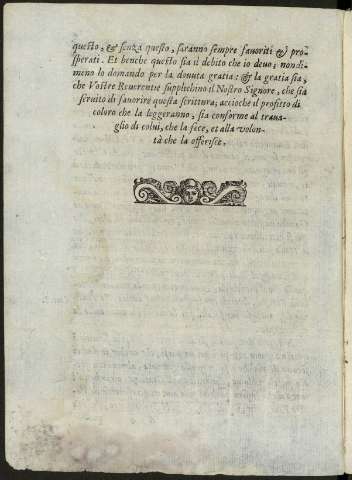 questo, & senza questo, saranno sempre fauoriti & pro-
sperati. Et benche questo sia il debito che io deuo; nondi-
meno lo domando per la douuta gratia: & la gratia sia,
che Vostre Reuerentie supplichino il Nostro Signore, che sia
seruito di fauorire questa scrittura; accioche il profitto di
coloro che la leggeranno, sia conforme al traua-
glio di colui, che la fece, et alla volon-
tà che la offerisce.